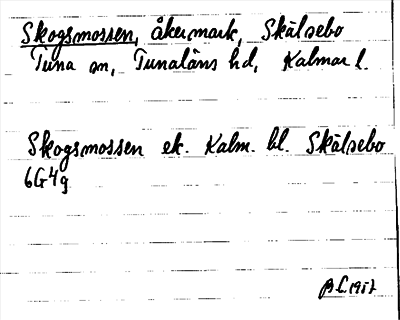 Skogsmossen, åkermark, Skälsebo
Tuna sn, Tunaläns hd, Kalmar l.
Skogsmossen ek. Kalm. bl. Skälsebo
6G4g